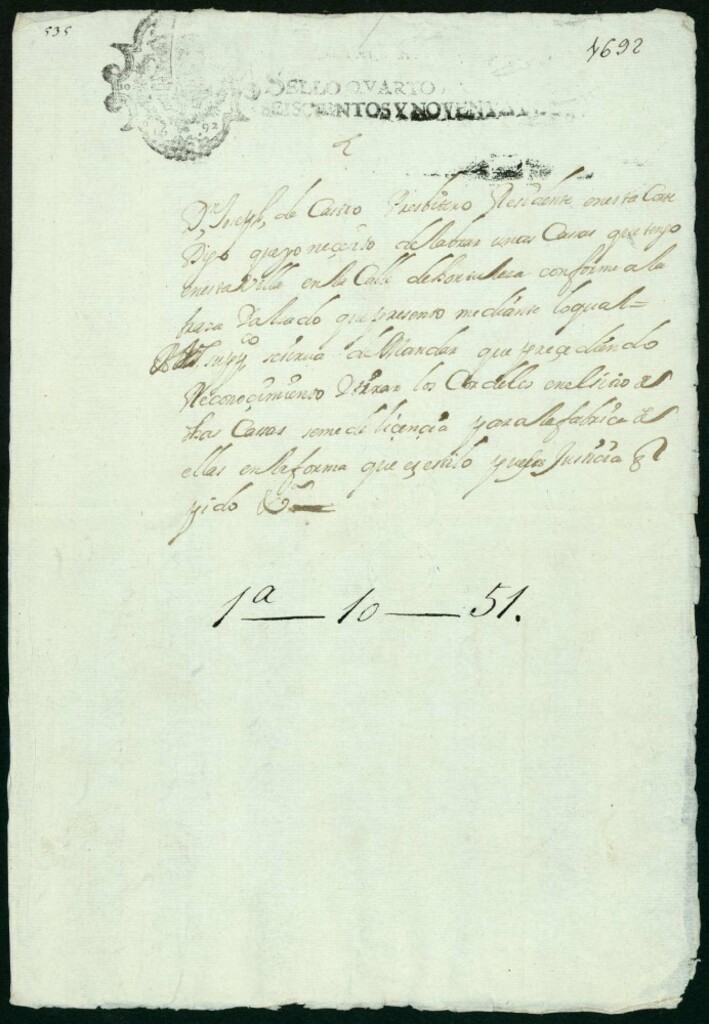 535
1692
SELLO QVARTO
SEISCIENTOS Y NOVENTA
16 92
Dn Joseph de Castro Presbitero Residente en esta Corte
Digo que yo neçesito de labrar unas Casas que tengo
en esta Villa en la Calle de Hortaleza conforme a la
traza que presento mediante lo qual =
A V. supco se sirva de Mandar que preçediendo
Reconoçimiento y tirar los Cordeles en el sitio de
dhas Casas se me de liçençia para la fabrica de
ellas en la forma que es estilo Justiçia
pido &
1a — 10 — 51.